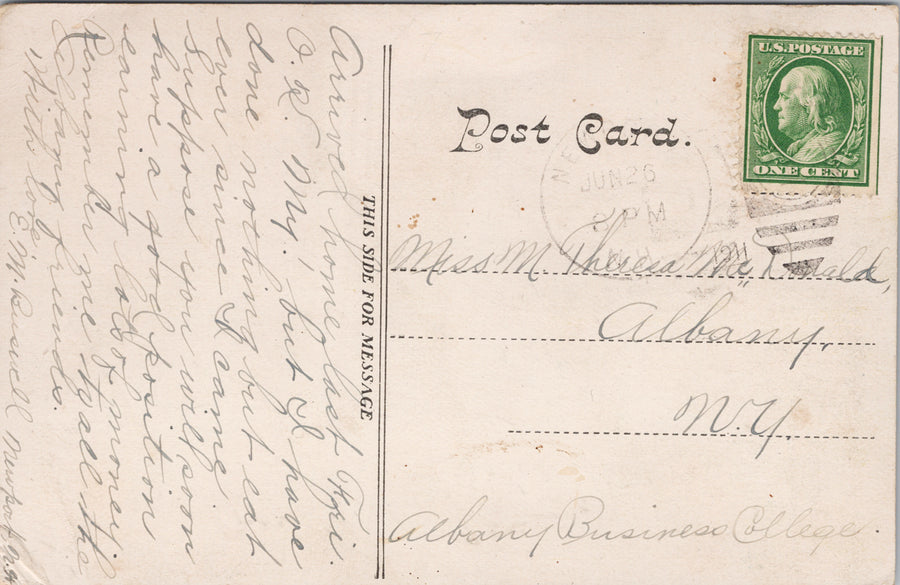 Arrived home last Fri.
O.K. My, but I have
done nothing but eat
ever since I came
Suppose you will soon
have a good position
earning lots of money
Remember me to all the
College friends.
With love
E M. Buswell Newport N.H
THIS SIDE FOR MESSAGE
Post Card.
U.S. POSTAGE
ONE CENT
NE
JUN 26
8 PM
Miss M Theresa McDonald,
Albany,
N.Y.
Albany Business College.